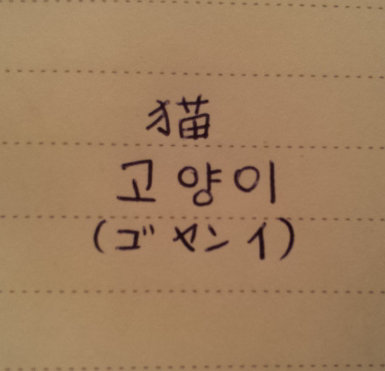 猫
고양이
(ゴヤンイ)